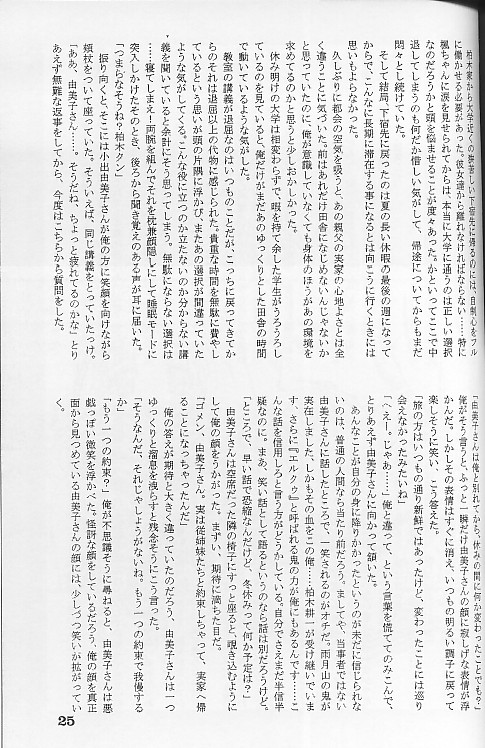 柏木家から大学近くの狭苦しい下宿先に帰るのには自制心をフル
に働かせる必要があった。彼女達から離れなければならない……特に
楓ちゃんに涙を見せられてからは、本当に大学に通うのは正しい選択
なのだろうかと頭を悩ませることが度々あった。かといってここで中
退してしまうのも何だか惜しい気がして、帰途についてからもまだ
悶々とし続けていた。
そして結局、下宿先に戻ったのは夏の長い休暇の最後の週になって
からで、こんなに長期に滞在する事になるとは向こうに行くときには
思いもよらなかった。
久しぶりに都会の空気を吸うと、あの親父の実家の心地よさとは全
く違うことに気づいた。前はあれだけ田舎になじめないんじゃないか
と思っていたのに、俺が意識していなくても身体のほうがあの環境を
求めてるのかと思うと少しおかしかった。
休み明けの大学は相変わらずで、暇を持て余した学生がうろうろし
ているのを見ていると、俺だけがまだあのゆっくりとした田舎の時間
で動いているような気がした。
教室の講義が退屈なのはいつものことだが、こっちに戻ってきてか
らのそれは退屈以上の代物に感じられた。貴重な時間を無駄に費やし
ているという思いが頭の片隅に浮かび、またあの選択が間違っていた
ような気がしてくる。こんな役に立つのか立たないのか分からない講
義を聞いていると余計にそう思ってしまう。無駄にならない選択は
……寝てしまえ！両腕を組んでそれを枕兼顔隠しにして睡眠モードに
突入しかけたそのとき、後ろから聞き覚えのある声が耳に届いた。
「つまらなそうね？柏木クン」
振り向くと、そこには小出由美子さんが俺の方に笑顔を向けながら
頬杖をついて座っていた。そういえば、同じ講義をとっていたっけ。
「ああ、由美子さん……。そうだね、ちょっと疲れてるのかな」とり
あえず無難な返事をしてから、今度はこちらから質問をした。
「由美子さんは俺と別れてから、休みの間に何か変わったことでも？」
俺がそう言うと、ふっと一瞬だけ由美子さんの顔に寂しげな表情が浮
かんだ。しかしその表情はすぐに消え、いつもの明るい調子に戻って
楽しそうに笑い、こう答えた。
「旅の方はいつもの通り新鮮ではあったけど、変わったことには巡り
会えなかったみたいね」
「へぇー。じゃあ……」俺と違って、という言葉を慌ててのみこんで、
とりあえず由美子さんに向かって頷いた。
あんなことが自分の身に降りかかったというのが未だに信じられな
いのは、普通の人間なら当たり前だろう。ましてや、当事者ではない
由美子さんに話したところで、一笑されるのがオチだ。雨月山の鬼が
実在しました。しかもその血をこの俺……柏木耕一が受け継いでいま
す、さらに『エルクゥ』と呼ばれる鬼の力が俺にもあるんです……こ
んな話を信用しろと言う方がどうかしている。自分でさえまだ半信半
疑なのに。まあ、笑い話として語るというのなら話は別だろうけど。
「ところで、早い話で恐縮なんだけど、冬休みって何か予定は？」
由美子さんは空席だった隣の椅子にすっと座ると、覗き込むように
して俺の顔をうかがった。まずい、期待に満ちた目だ。
「ゴメン、由美子さん。実は従姉妹たちと約束しちゃって、実家へ帰
ることになっちゃったんだ」
俺の答えが期待と大きく違っていたのだろう、由美子さんは一つ
ゆっくりと溜息を洩らすと残念そうにこう言った。
「そうなんだ、それじゃしょうがないね。もう一つの約束で我慢する
か」
「もう一つの約束？」俺が不思議そうに尋ねると、由美子さんは悪
戯っぽい微笑を浮かべた。怪訝な顔をしているだろう、俺の顔を真正
面から見つめている由美子さんの顔には、少しづつ笑いが拡がってい
く。
25